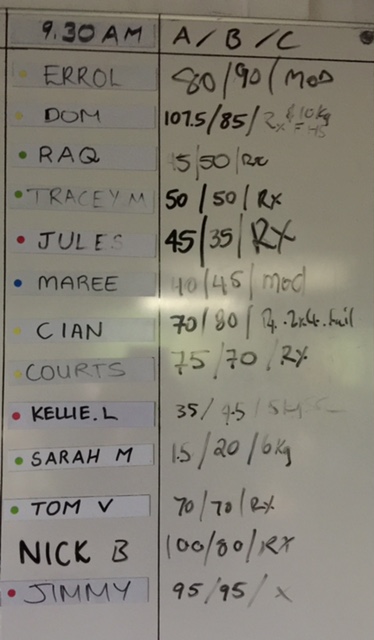 9.30 AM A / B / C
ERROL 80/90/MOD
DOM 107.5/85/Rx
RAQ 45/50/Rx
TRACEY M 50/50/Rx
JULES 45/35/RX
MAREE 40/45/mod
CIAN 70/80/
COURTS 75/70/RX
KELLIE.L 35/45/
SARAH M 15/20/6kg
TOM V 70/70/RX
NICK B 100/80/RX
JIMMY 95/95/X